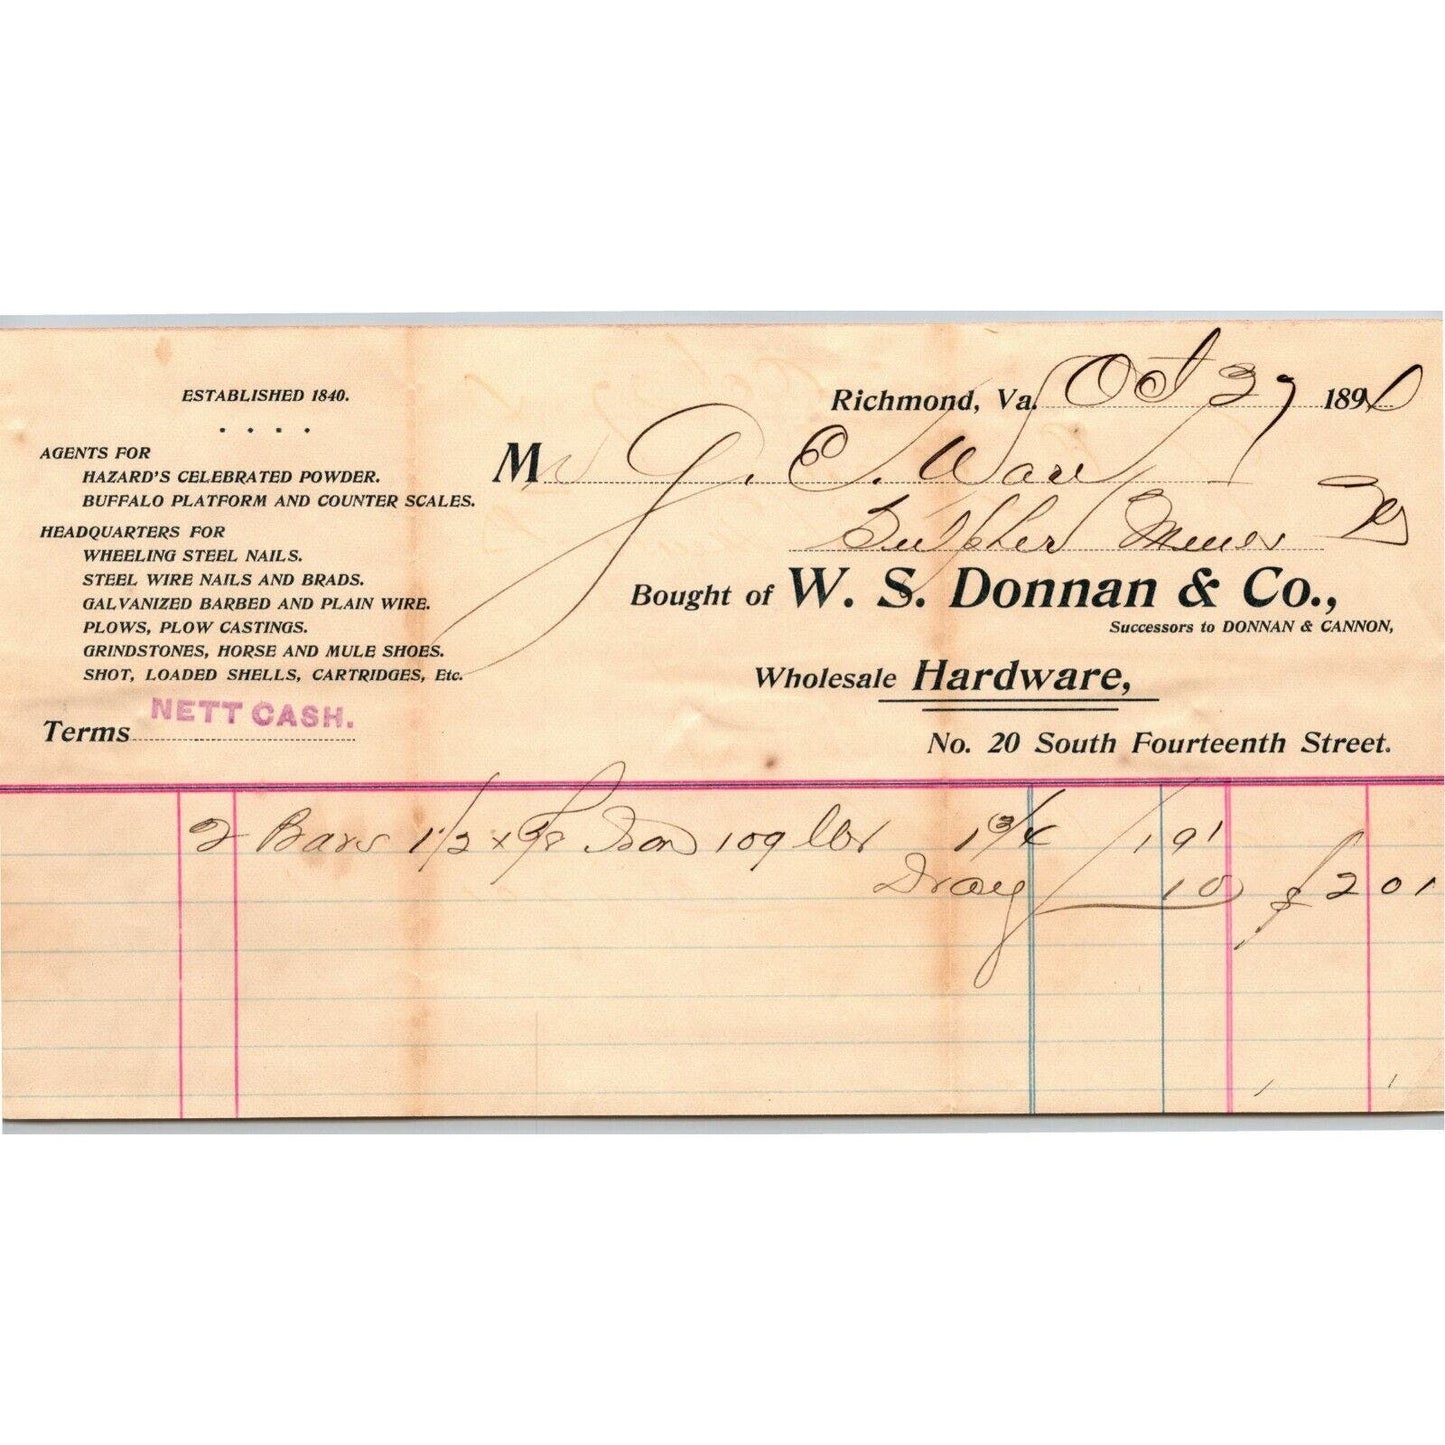 ESTABLISHED 1840.
. . . .
AGENTS FOR
HAZARD'S CELEBRATED POWDER.
BUFFALO PLATFORM AND COUNTER SCALES.
HEADQUARTERS FOR
WHEELING STEEL NAILS.
STEEL WIRE NAILS AND BRADS.
GALVANIZED BARBED AND PLAIN WIRE.
PLOWS, PLOW CASTINGS.
GRINDSTONES, HORSE AND MULE SHOES.
SHOT, LOADED SHELLS, CARTRIDGES, Etc.
Terms NETT CASH.
Richmond, Va. Oct 27 189
Mr J. E. Ware
Sulpher Mines
Bought of W. S. Donnan & Co.,
Successors to DONNAN & CANNON,
Wholesale Hardware,
No. 20 South Fourteenth Street.
2 Bars 1 1/2 x 3/8 Iron 109 lbs 1 3/4 1 91
Dray 10 $ 2 01